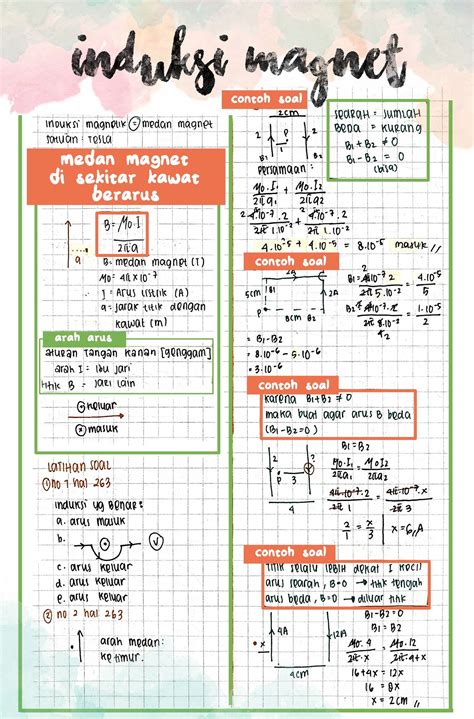 induksi magnet
induksi magnetik = medan magnet
satuan = Tesla
medan magnet
di sekitar kawat
berarus
B = μo.I
2πa
a
B = medan magnet (T)
μo = 4π×10⁻⁷
I = Arus listrik (A)
a = jarak titik dengan
kawat (m)
arah arus
aturan tangan kanan [genggam]
arah I = ibu jari
titik B = jari lain
keluar
masuk
LATIHAN SOAL
① no 7 hal 263
induksi yg benar?
a. arus masuk
b.
c. arus keluar
d. arus keluar
e. arus keluar
② no 2 hal 263
arah medan:
ke timur.
contoh soal
2cm
P
B1 B2
Persamaan:
μo.I1 + μo.I2
2πa1 2πa2
4.10⁻⁵ + 4.10⁻⁵ = 8.10⁻⁵ masuk //
searah = jumlah
beda = kurang
B1 + B2 ≠ 0
B1 - B2 = 0
(bisa)
contoh soal
5cm B1
2A
P 8cm B2
= 4.10⁻⁵
5
= B1 - B2
= 8.10⁻⁶ - 5.10⁻⁶
= 3.10⁻⁶
contoh soal
karena B1+B2 ≠ 0
maka buat agar arus B beda
(B1-B2=0)
2 ?
P 3
4
B1 = B2
μo.I1 = μo I2
2πa1 2πa2
4π.10⁻⁷.2 = 4π.10⁻⁷.x
2π 1 2π 3
2 = x
1 3
x = 6A
contoh soal
titik selalu lebih dekat I kecil
arus searah, B=0 → titik tengah
arus beda, B=0 → diluar titik
4A 12A
x
4cm
B1-B2 = 0
B1 = B2
μo. 4 = μo.12
2π.x 2π.4+x
16+4x = 12x
16 = 8x
x = 2cm //